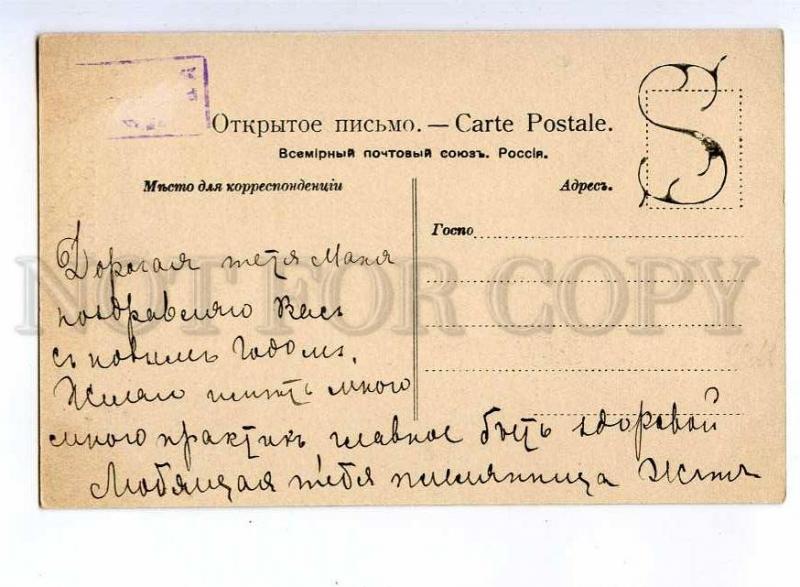 Открытое письмо. — Carte Postale.
Всемірный почтовый союзъ. Россія.
Мѣсто для корреспонденціи
Адресъ.
Госпо
Дорогая тетя Маня
поздравляю Васъ
съ новымъ годомъ,
Желаю имѣть много
много практикъ, главное быть здоровой
Любящая тебя племянница
NOT FOR COPY